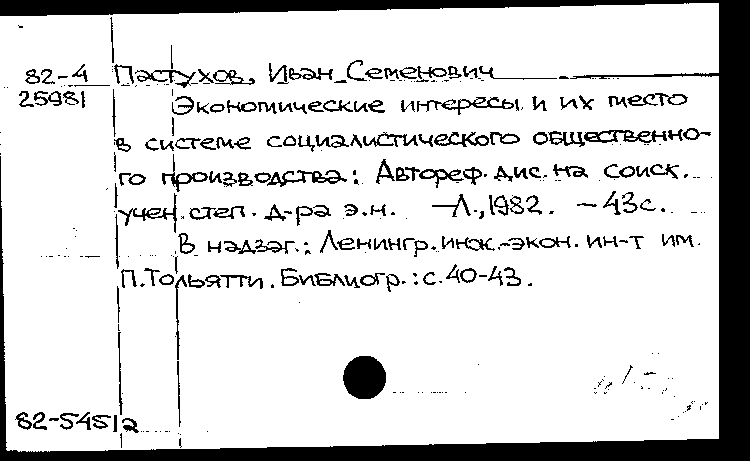 82-4 Пастухов, Иван Семенович
25981 Экономические интересы и их место
в системе социалистического общественно-
го производства: Автореф. дис. на соиск.
учен. степ. д-ра э.н. –Л., 1982. – 43с.
В надзаг.: Ленингр. инж.-экон. ин-т им.
П. Тольятти. Библиогр.: с. 40-43.